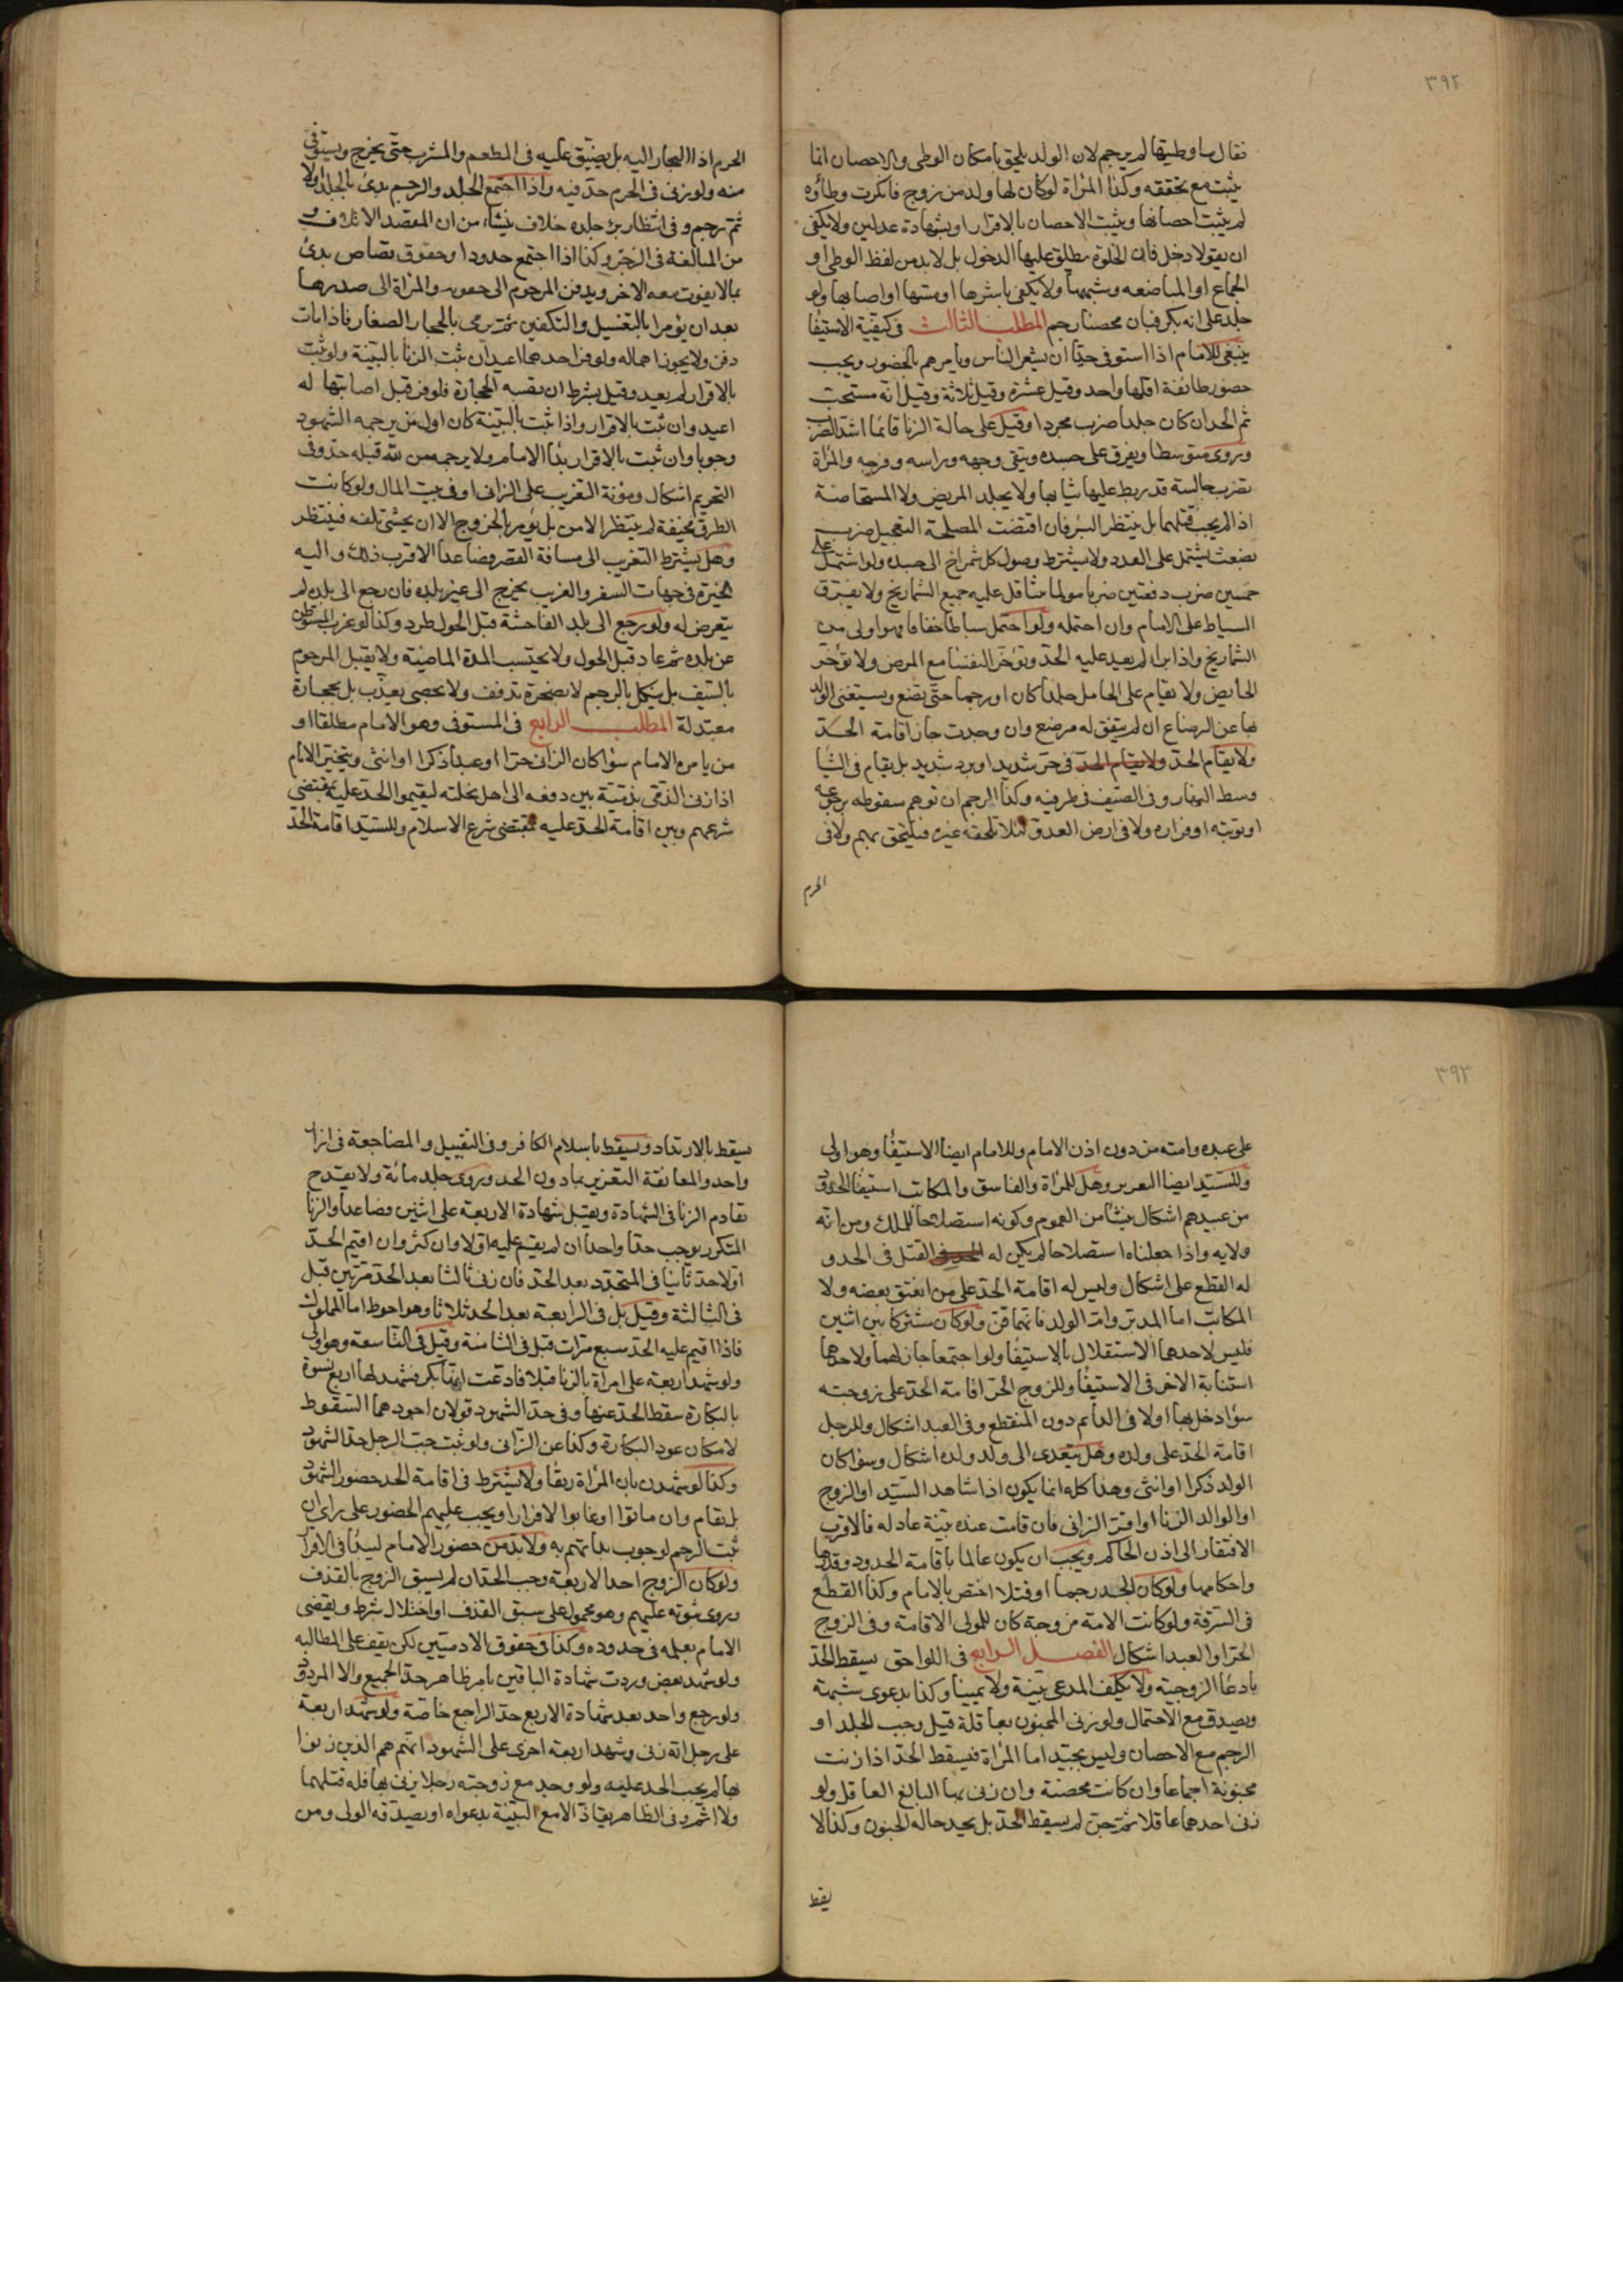 ٣٩٢
فقال ما وطيتها لم يرجم لان الولد يلحق بامكان الوطى والاحصان انما
يثبت مع تحققه وكذا المراة لوكان لها ولد من زوج فانكرت وطاوه
لم يثبت احصانها ويثبت الاحصان بالاقرار او بشهادة عدلين ولا يكفى
ان يقولا دخل فان الخلوة يطلق عليها الدخول بل لابد من لفظ الوطى او
الجماع او المباضعه وشبهها ولا يكفى باشرها او مسها او اصابها ولو
جلد على انه بكر فبان محصنا رجم المطلب الثالث فى كيفية الاستيفا
ينبغى للامام اذا استوفى حدا ان يشعر الناس ويامرهم بالحضور ويجب
حضور طائفة اقلها واحد وقيل عشرة وقيل ثلاثة وقيل انه مستحب
ثم الحد ان كان جلدا ضرب مجردا وقيل على حالة الزنا قائما اشد الضرب
وروى متوسطا ويفرق على جسده ويتقى وجهه وراسه وفرجه والمراة
تضرب جالسة قد ربط عليها ثيابها ولا يجلد المريض ولا المستحاضة
اذا لم يجب قتلهما بل ينتظر البرؤ فان اقتضت المصلحة التعجيل ضرب
بضغث يشتمل على العدد ولا يشترط وصول كل شمراخ الى جسده ولو اشتمل على
خمسين ضرب دفعتين ضربا مولما يتثاقل عليه جميع الشماريخ ولا يفرق
السياط على الايام وان احتمله ولو احتمل سياطا خفافا فهو اولى من
الشماريخ واذا برا لم يعد عليه الحد وتؤخر النفسا مع المرض ولا تؤخر
الحايض ولا يقام على الحامل جلدا كان او رجما حتى تضع ويستغنى الولد
بها عن الرضاع ان لم يتفق له مرضع وان وجدت جاز اقامة الحد
ولا يقام الحد ولا يقام الحد فى حر شديد او برد شديد بل يقام فى الشتا
وسط النهار وفى الصيف فى طرفيه وكذا الرجم ان توهم سقوطه برجوعه
او توبته او فراره ولا فى ارض العدو لئلا تلحقه غيرة فيلتحق بهم ولا فى
الحرم
الحرم اذا التجا اليه بل يضيق عليه فى المطعم والمشرب حتى يخرج ويستوفى
منه ولو زنى فى الحرم حد فيه واذا اجتمع الجلد والرجم بدئ بالجلد اولا
ثم رجم وفى انتظار برء جلده خلاف ينشاء من ان المقصد الاتلاف و
من المبالغة فى الزجر وكذا اذا اجتمع حدود او حقوق قصاص بدئ
بما لا يفوت معه الاخر ويدفن المرجوم الى حقويه والمراة الى صدرها
بعد ان يؤمرا بالتغسيل والتكفين ثم يرمى بالحجار الصغار فاذا مات
دفن ولا يجوز اهماله ولو فر احدهما اعيد ان ثبت الزنا بالبينة ولو ثبت
بالاقرار لم يعد وقيل بشرط ان تصيبه الحجارة فلو فر قبل اصابتها له
اعيد وان ثبت بالاقرار واذا ثبت بالبينة كان اول من يرجمه الشهود
وجوبا وان ثبت بالاقرار بدا الامام ولا يرجمه من لله قبله حد وفى
التحريم اشكال ومؤنة التغريب على الزانى او فى بيت المال ولو كانت
الطرق مخيفة لم ينتظر الامن بل يؤمر بالخروج الا ان يخشى تلفه فينتظر
وهل يشترط التغريب الى مسافة القصر فصاعدا الاقرب ذلك واليه
الخيرة فى جهات السفر والغريب يخرج الى غير بلده فان رجع الى بلده لم
يتعرض له ولو رجع الى بلد الفاحشة قبل الحول طرد وكذا لو غرب المستوطن
عن بلده ثم عاد قبل الحول ولا يحتسب المدة الماضية ولا يقتل المرجوم
بالسيف بل ينكل بالرجم لا بصخرة تدفف ولا بحصى يعذب بل بحجارة
معتدلة المطلب الرابع فى المستوفى وهو الامام مطلقا او
من يامره الامام سواء كان الزانى حرا او عبدا ذكرا او انثى ويتخير الامام
اذا زنى الذمى بذمية بين دفعه الى اهل نحلته ليقيموا الحد عليه بمقتضى
شرعهم وبين اقامة الحد عليه بمقتضى شرع الاسلام وللسيد اقامة الحد
٣٩٣
على عبده وامته من دون اذن الامام وللامام ايضا الاستيفا وهو اولى
وللسيد ايضا التعزير وهل للمراة والفاسق والمكاتب استيفا الحدود
من عبيدهم اشكال ينشا من العموم وكونه استصلاحا للملك ومن انه
ولايه واذا جعلناه استصلاحا لم يكن له القتل فى الحد و
له القطع على اشكال وليس له اقامة الحد على من انعتق بعضه ولا
المكاتب اما المدبر وام الولد فانهما قن ولو كان مشتركا بين اثنين
فليس لاحدهما الاستقلال بالاستيفا ولو اجتمعا جاز لهما ولاحدهما
استنابة الاخر فى الاستيفا وللزوج الحر اقامة الحد على زوجته
سواء دخل بها او لا فى الدائم دون المنقطع وفى العبد اشكال وللرجل
اقامة الحد على ولده وهل يتعدى الى ولد ولده اشكال وسوا كان
الولد ذكرا او انثى وهذا كله انما يكون اذا شاهد السيد او الزوج
او الوالد الزنا او اقر الزانى فان قامت عنده بينة عادله فالاقرب
الافتقار الى اذن الحاكم ويجب ان يكون عالما باقامة الحدود وقدرها
واحكامها ولو كان الحد رجما او قتلا اختص بالامام وكذا القطع
فى السرقة ولو كانت الامة مزوجة كان للمولى الاقامة وفى الزوج
الحر او العبد اشكال الفصل الرابع فى اللواحق يسقط الحد
بادعا الزوجية ولا يكلف المدعى بينة ولا يمينا وكذا بدعوى شبهة
ويصدق مع الاحتمال ولو زنى المجنون بعاقلة قيل وجب الجلد او
الرجم مع الاحصان وليس بجيد اما المراة فيسقط الحد اذا زنت
مجنونة اجماعا وان كانت محصنة وان زنى بها البالغ العاقل ولو
زنى احدهما عاقلا ثم جن لم يسقط الحد بل يحد حاله الجنون وكذا لا
يقط
يسقط بالارتداد ويسقط باسلام الكافر وفى التقبيل والمضاجعة فى ازار
واحد والمعانقة التعزير بما دون الحد وروى جلد مائة ولا يقدح
تقادم الزنا فى الشهادة ويقبل شهادة الاربعة على اثنين فصاعدا والزنا
المتكرر يوجب حدا واحدا ان لم يقم عليه اولا وان كثر وان اقيم الحد
اولا حد ثانيا فى المتجدد بعد الحد فان زنى ثالثا بعد الحد مرتين قتل
فى الثالثة وقيل بل فى الرابعة بعد الحد ثلاثا وهو احوط اما المملوك
فاذا اقيم عليه الحد سبع مرات قتل فى الثامنة وقيل فى التاسعة وهو اولى
ولو شهد اربعة على امراة بالزنا قبلا فادعت انها بكر فشهد لها اربع نسوة
بالبكارة سقط الحد عنها وفى حد الشهود قولان اجودهما السقوط
لامكان عود البكارة وكذا عن الزانى ولو ثبت جب الرجل حد الشهود
وكذا لو شهدن بان المراة رتقا ولا يشترط فى اقامة الحد حضور الشهود
بل يقام وان ماتوا او غابوا لا فرارا ويجب عليهم الحضور على راى ان
ثبت الرجم لوجوب بداتهم به ولابد من حضور الامام ليبدا فى الاقرار
ولو كان الزوج احد الاربعة وجب الحد ان لم يسبق الزوج بالقذف
وروى ثبوته عليهم وهو محمول على سبق القذف او اختلال شرط ويقضى
الامام بعلمه فى حدوده وكذا فى حقوق الادميين لكن يقف على المطالبه
ولو شهد بعض وردت شهادة الباقين بامر ظاهر حد الجميع والا المردود
ولو رجع واحد بعد شهادة الاربع حد الراجع خاصة ولو شهد اربعة
على رجل انه زنى وشهد اربعة اخرى على الشهود انهم هم الذين زنوا
بها لم يجب الحد عليه ولو وجد مع زوجته رجلا يزنى بها فله قتلهما
ولا اثم وفى الظاهر يقاد الا مع البينة بدعواه او يصدقه الولى ومن